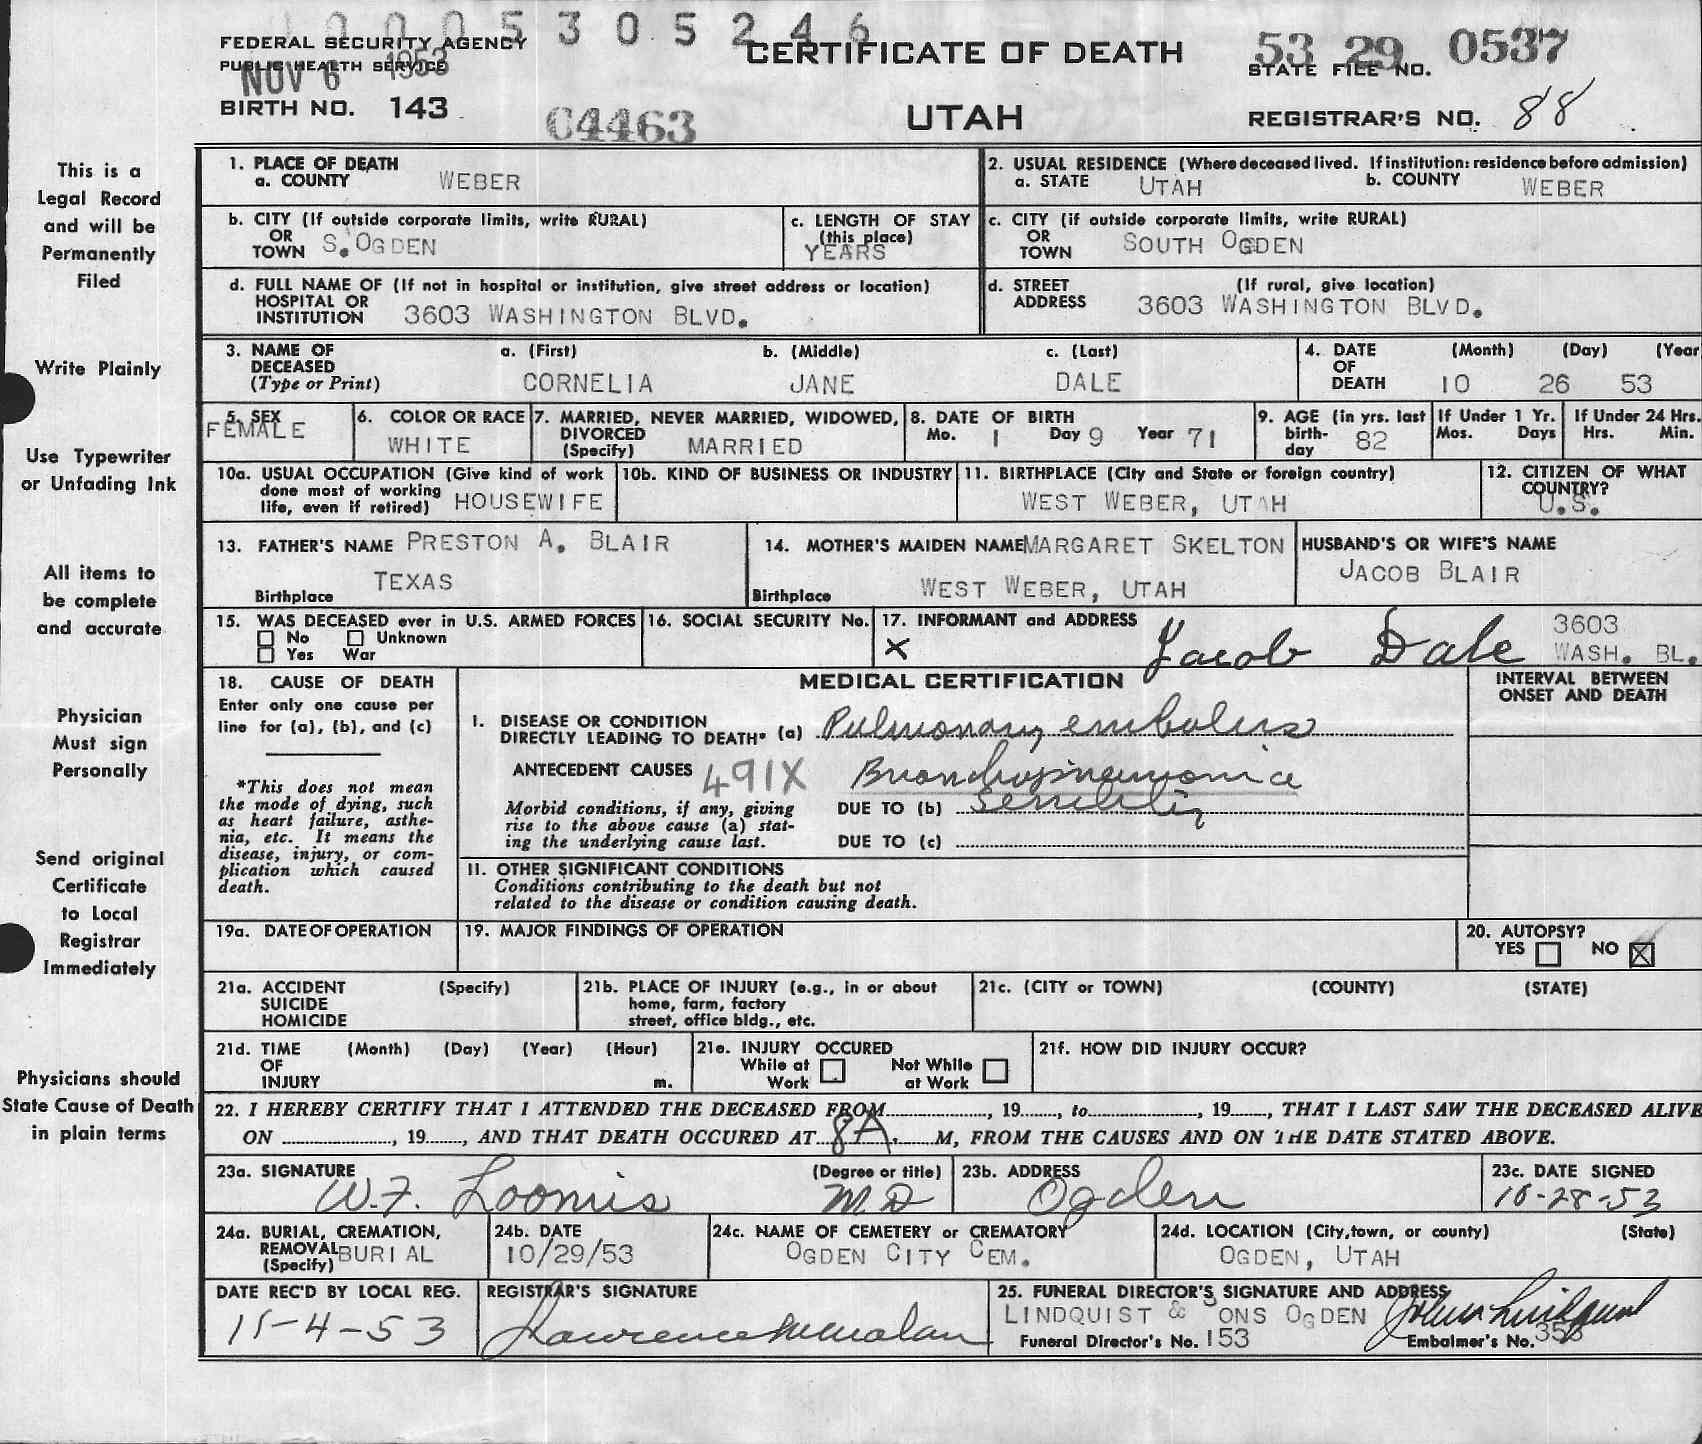 1 0 0 0 5 3 0 5 2 4 6
FEDERAL SECURITY AGENCY
PUBLIC HEALTH SERVICE
NOV 6 1953
BIRTH NO. 143
C4463
CERTIFICATE OF DEATH
UTAH
53 29 0537
STATE FILE NO.
REGISTRAR'S NO. 88
This is a
Legal Record
and will be
Permanently
Filed
Write Plainly
Use Typewriter
or Unfading Ink
All items to
be complete
and accurate
Physician
Must sign
Personally
Send original
Certificate
to Local
Registrar
Immediately
Physicians should
State Cause of Death
in plain terms
1. PLACE OF DEATH
a. COUNTY WEBER
2. USUAL RESIDENCE (Where deceased lived. If institution: residence before admission)
a. STATE UTAH b. COUNTY WEBER
b. CITY (If outside corporate limits, write RURAL)
OR
TOWN S. OGDEN
c. LENGTH OF STAY
(this place)
YEARS
c. CITY (if outside corporate limits, write RURAL)
OR
TOWN SOUTH OGDEN
d. FULL NAME OF (If not in hospital or institution, give street address or location)
HOSPITAL OR
INSTITUTION 3603 WASHINGTON BLVD.
d. STREET (If rural, give location)
ADDRESS 3603 WASHINGTON BLVD.
3. NAME OF a. (First) b. (Middle) c. (Last)
DECEASED
(Type or Print) CORNELIA JANE DALE
4. DATE (Month) (Day) (Year
OF
DEATH 10 26 53
5. SEX
FEMALE
6. COLOR OR RACE
WHITE
7. MARRIED, NEVER MARRIED, WIDOWED,
DIVORCED
(Specify) MARRIED
8. DATE OF BIRTH
Mo. 1 Day 9 Year 71
9. AGE (in yrs. last
birth-
day 82
If Under 1 Yr.
Mos. Days
If Under 24 Hrs.
Hrs. Min.
10a. USUAL OCCUPATION (Give kind of work
done most of working
life, even if retired) HOUSEWIFE
10b. KIND OF BUSINESS OR INDUSTRY
11. BIRTHPLACE (City and State or foreign country)
WEST WEBER, UTAH
12. CITIZEN OF WHAT
COUNTRY?
U.S.
13. FATHER'S NAME PRESTON A. BLAIR
TEXAS
Birthplace
14. MOTHER'S MAIDEN NAME MARGARET SKELTON
WEST WEBER, UTAH
Birthplace
HUSBAND'S OR WIFE'S NAME
JACOB BLAIR
15. WAS DECEASED ever in U.S. ARMED FORCES
No Unknown
Yes War
16. SOCIAL SECURITY No.
17. INFORMANT and ADDRESS
X Jacob Dale 3603
WASH. BL.
18. CAUSE OF DEATH
Enter only one cause per
line for (a), (b), and (c)
*This does not mean
the mode of dying, such
as heart failure, asthe-
nia, etc. It means the
disease, injury, or com-
plication which caused
death.
MEDICAL CERTIFICATION
INTERVAL BETWEEN
ONSET AND DEATH
I. DISEASE OR CONDITION
DIRECTLY LEADING TO DEATH* (a) Pulmonary embolus
ANTECEDENT CAUSES 491X Bronchopneumonia
Morbid conditions, if any, giving
rise to the above cause (a) stat-
ing the underlying cause last.
DUE TO (b) Senility
DUE TO (c)
II. OTHER SIGNIFICANT CONDITIONS
Conditions contributing to the death but not
related to the disease or condition causing death.
19a. DATE OF OPERATION
19. MAJOR FINDINGS OF OPERATION
20. AUTOPSY?
YES NO X
21a. ACCIDENT (Specify)
SUICIDE
HOMICIDE
21b. PLACE OF INJURY (e.g., in or about
home, farm, factory
street, office bldg., etc.
21c. (CITY or TOWN) (COUNTY) (STATE)
21d. TIME (Month) (Day) (Year) (Hour)
OF
INJURY m.
21e. INJURY OCCURED
While at Not While
Work at Work
21f. HOW DID INJURY OCCUR?
22. I HEREBY CERTIFY THAT I ATTENDED THE DECEASED FROM , 19 , to , 19 , THAT I LAST SAW THE DECEASED ALIVE
ON , 19 , AND THAT DEATH OCCURED AT 8A. M, FROM THE CAUSES AND ON THE DATE STATED ABOVE.
23a. SIGNATURE (Degree or title)
W.F. Loomis MD
23b. ADDRESS
Ogden
23c. DATE SIGNED
10-28-53
24a. BURIAL, CREMATION,
REMOVAL BURIAL
(Specify)
24b. DATE
10/29/53
24c. NAME OF CEMETERY or CREMATORY
OGDEN CITY CEM.
24d. LOCATION (City, town, or county) (State)
OGDEN, UTAH
DATE REC'D BY LOCAL REG.
11-4-53
REGISTRAR'S SIGNATURE
Lawrence
25. FUNERAL DIRECTOR'S SIGNATURE AND ADDRESS
LINDQUIST & SONS OGDEN John Lindquist
Funeral Director's No. 153 Embalmer's No.